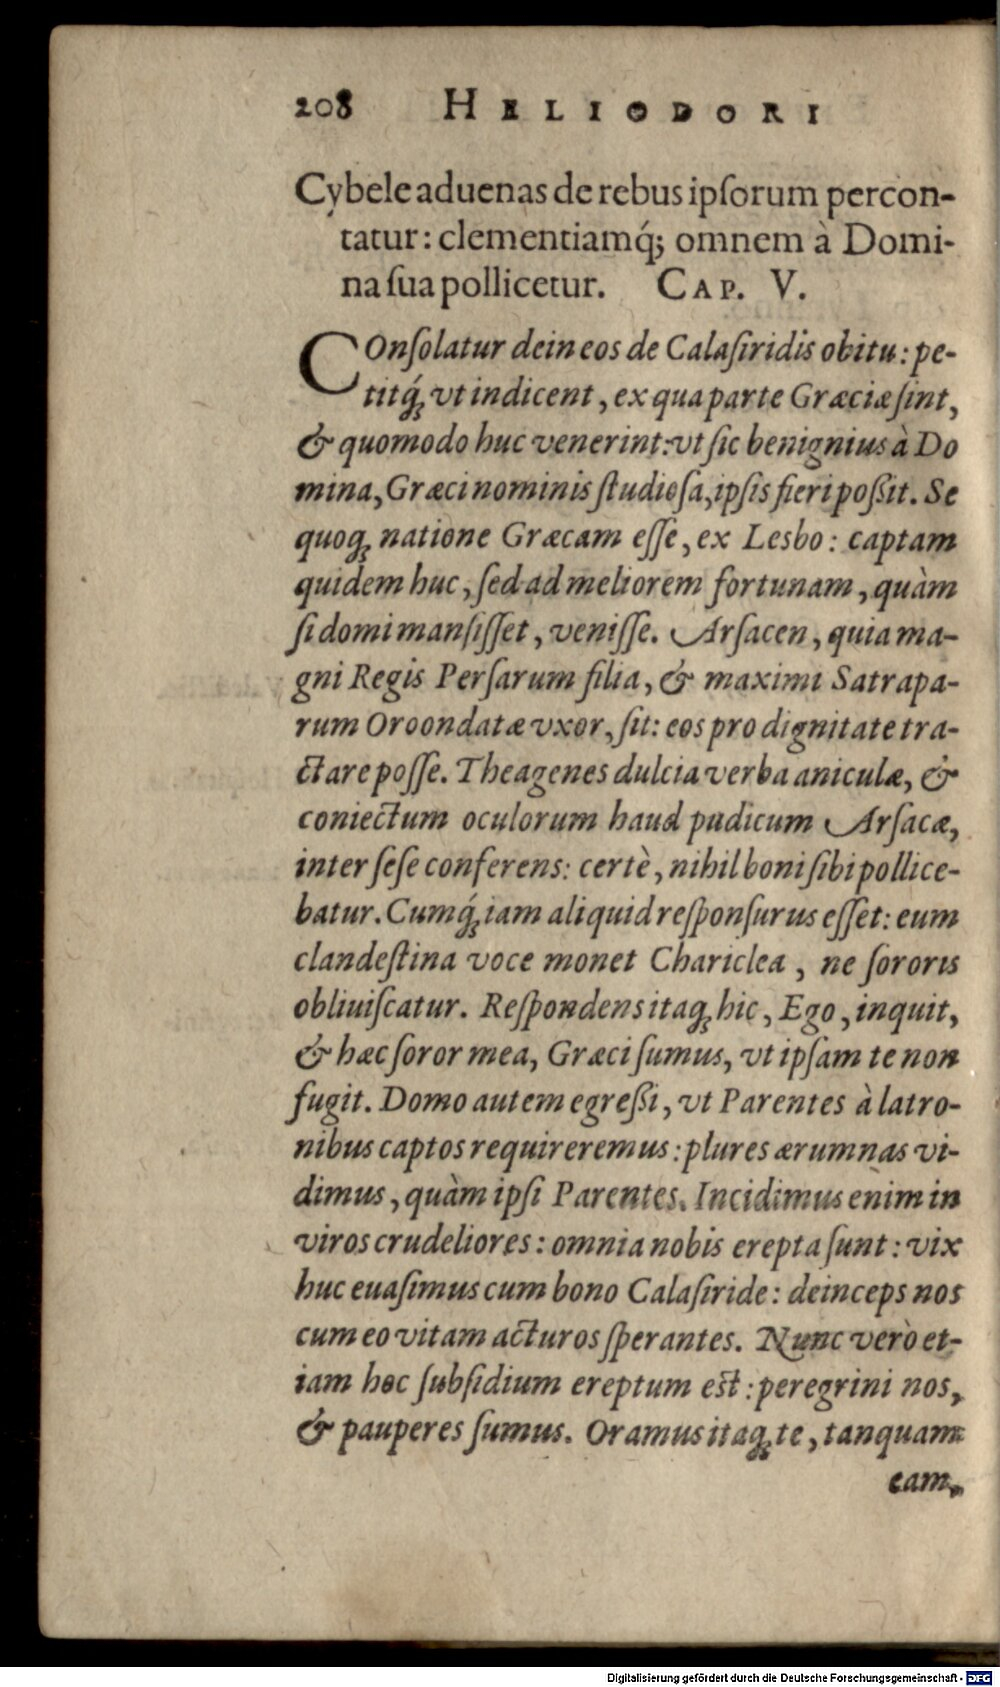 208 HELIODORI
Cybele aduenas de rebus ipſorum percon-
tatur: clementiamq́; omnem à Domi-
na ſua pollicetur. CAP. V.
COnſolatur dein eos de Calaſiridis obitu: pe-
titq́; vt indicent, ex qua parte Græciæ ſint,
& quomodo huc venerint: vt ſic benignius à Do
mina, Græci nominis ſtudioſa, ipſis fieri poßit. Se
quoq; natione Græcam eſſe, ex Lesbo: captam
quidem huc, ſed ad meliorem fortunam, quàm
ſi domi manſiſſet, veniſſe. Arſacen, quia ma-
gni Regis Perſarum filia, & maximi Satrapa-
rum Oroondatæ vxor, ſit: eos pro dignitate tra-
ctare poſſe. Theagenes dulcia verba aniculæ, &
coniectum oculorum haud pudicum Arſacæ,
inter ſeſe conferens: certè, nihil boni ſibi pollice-
batur. Cumq́; iam aliquid reſponſurus eſſet: eum
clandeſtina voce monet Chariclea, ne ſororis
obliuiſcatur. Reſpondens itaq; hic, Ego, inquit,
& hæc ſoror mea, Græci ſumus, vt ipſam te non
fugit. Domo autem egreßi, vt Parentes à latro-
nibus captos requireremus: plures ærumnas vi-
dimus, quàm ipſi Parentes. Incidimus enim in
viros crudeliores: omnia nobis erepta ſunt: vix
huc euaſimus cum bono Calaſiride: deinceps nos
cum eo vitam acturos ſperantes. Nunc verò et-
iam hoc ſubſidium ereptum est: peregrini nos,
& pauperes ſumus. Oramus itaq; te, tanquam
eam,
Digitalisierung gefördert durch die Deutsche Forschungsgemeinschaft - DFG